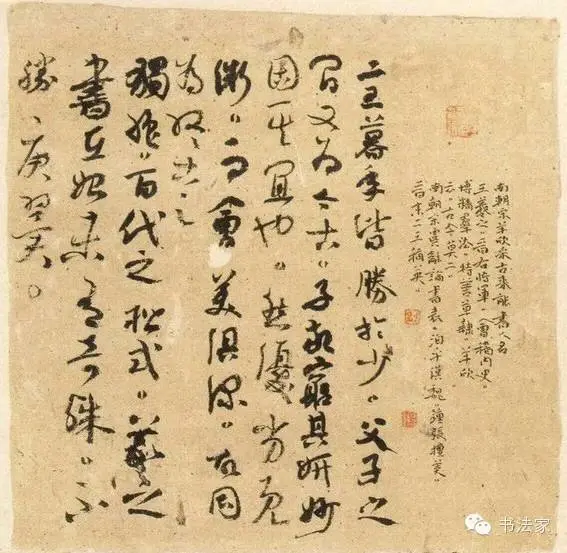 南朝宋羊欣采古來能書人名
王羲之。晉右將軍。會稽內史。
博精羣法。特善草隸。羊欣
云。古今莫二。
南朝宋虞龢論書表。洎乎漢魏。鍾張擅美。
晉末二王稱英。
二王暮年皆勝於少。父子之
間又為今古。子敬窮其妍妙
固其宜也。然優劣既
微。而會美俱深。故同
為終古之
獨絕。百代之楷式。羲之
書在始未有奇殊。不
勝、庾翼。
书法家